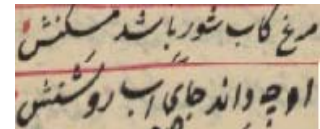 مرغ کاب شور باشد مسکنش
او چه داند جای آب روشنش